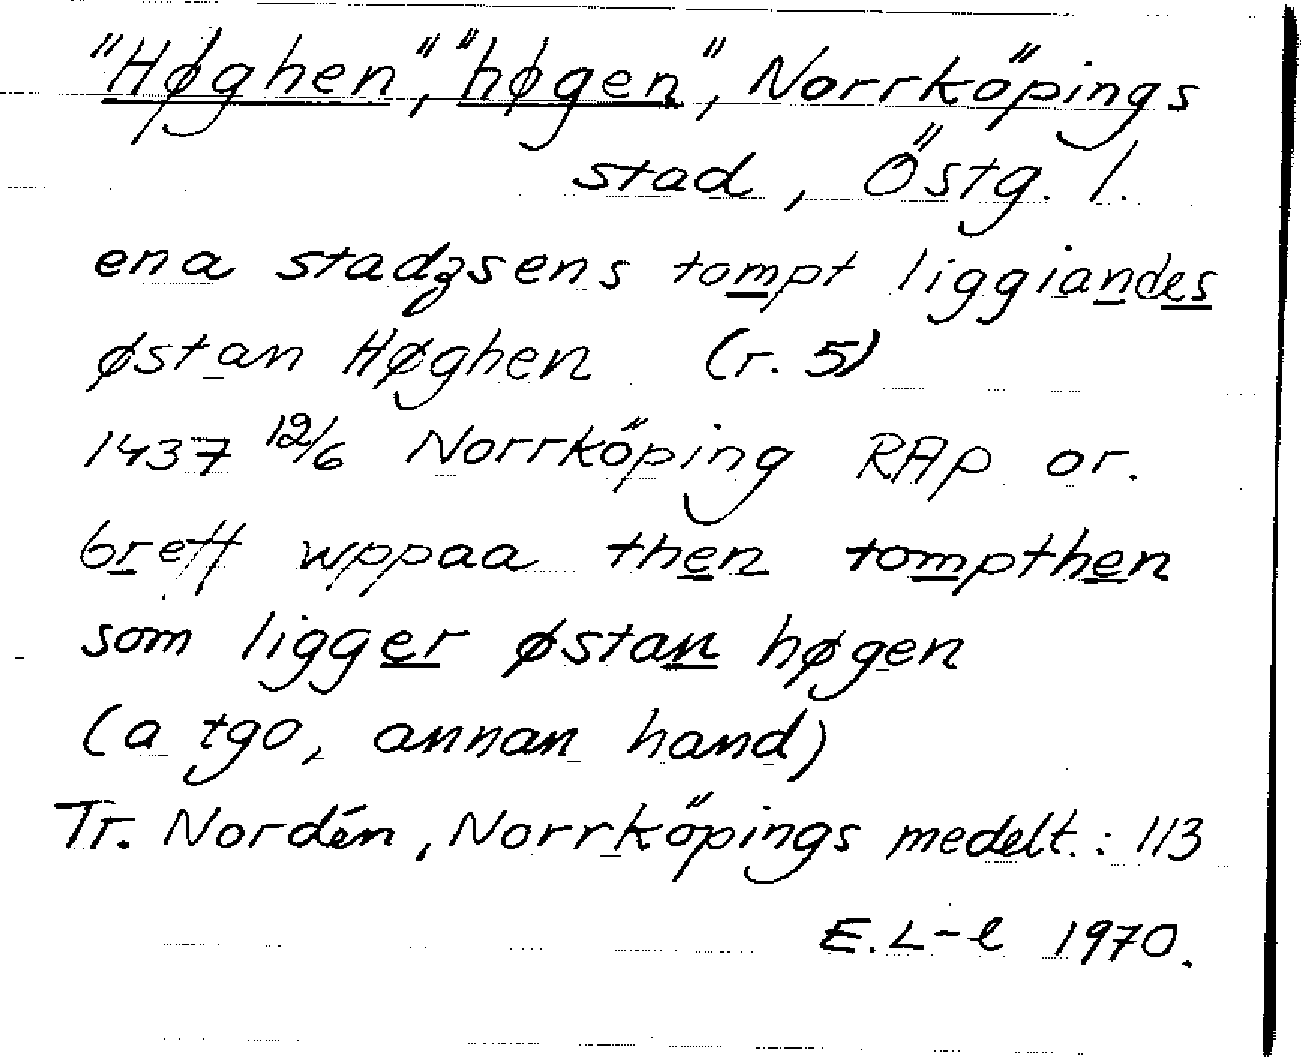 "Høghen", "høgen", Norrköpings
stad, Östg. l.
ena stadzsens tompt liggiandes
østan Høghen (r. 5)
1437 12/6 Norrköping RAp or.
breff wppaa then tompthen
som ligger østan høgen
(a tgo, annan hand)
Tr. Nordén, Norrköpings medelt.: 113
E. L-l 1970.